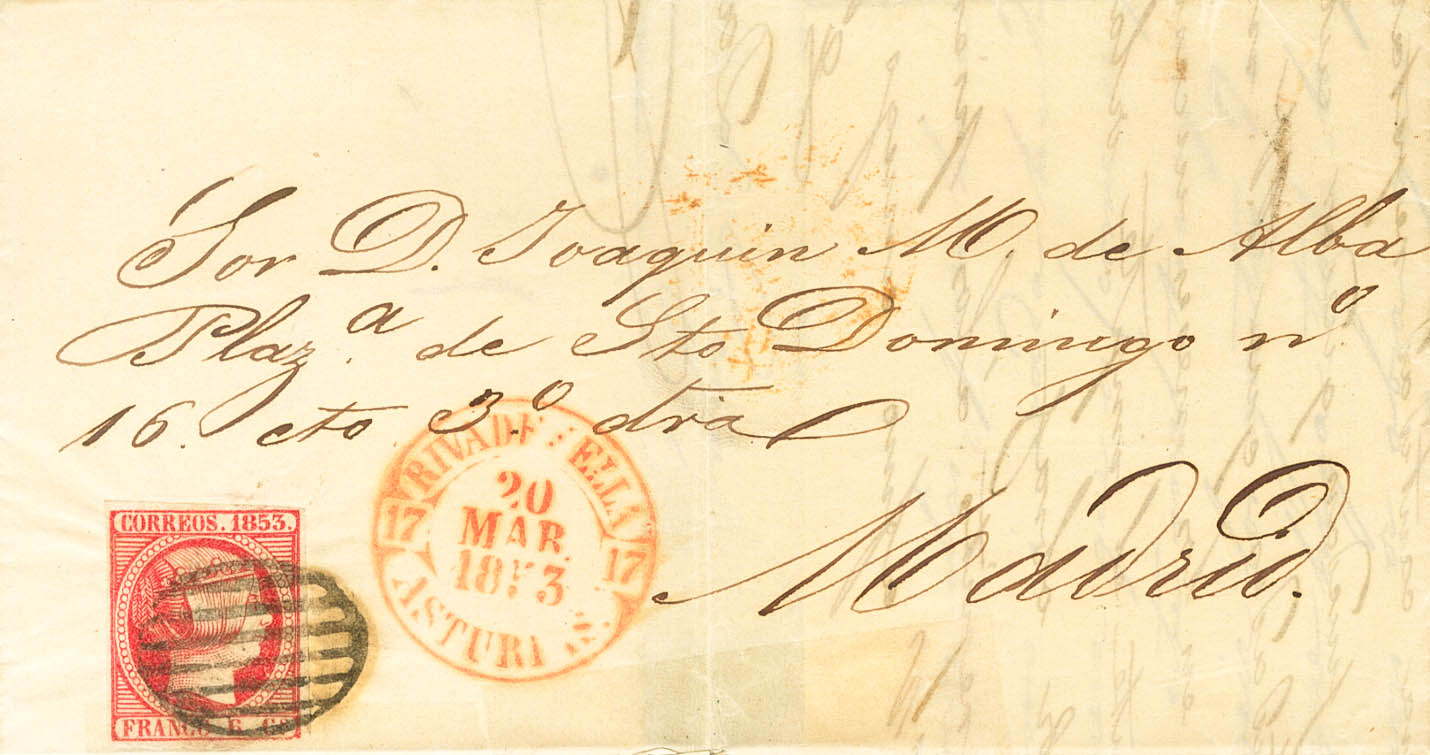 Sor D. Joaquin M. de Alba
Plaz.ª de Sto Domingo nº
16. cto 3.º dra
Madrid.
RIVADE ELLA
17 17
20
MAR
18 3
ASTURI S.
CORREOS. 1853.
FRANCO 6 Cs